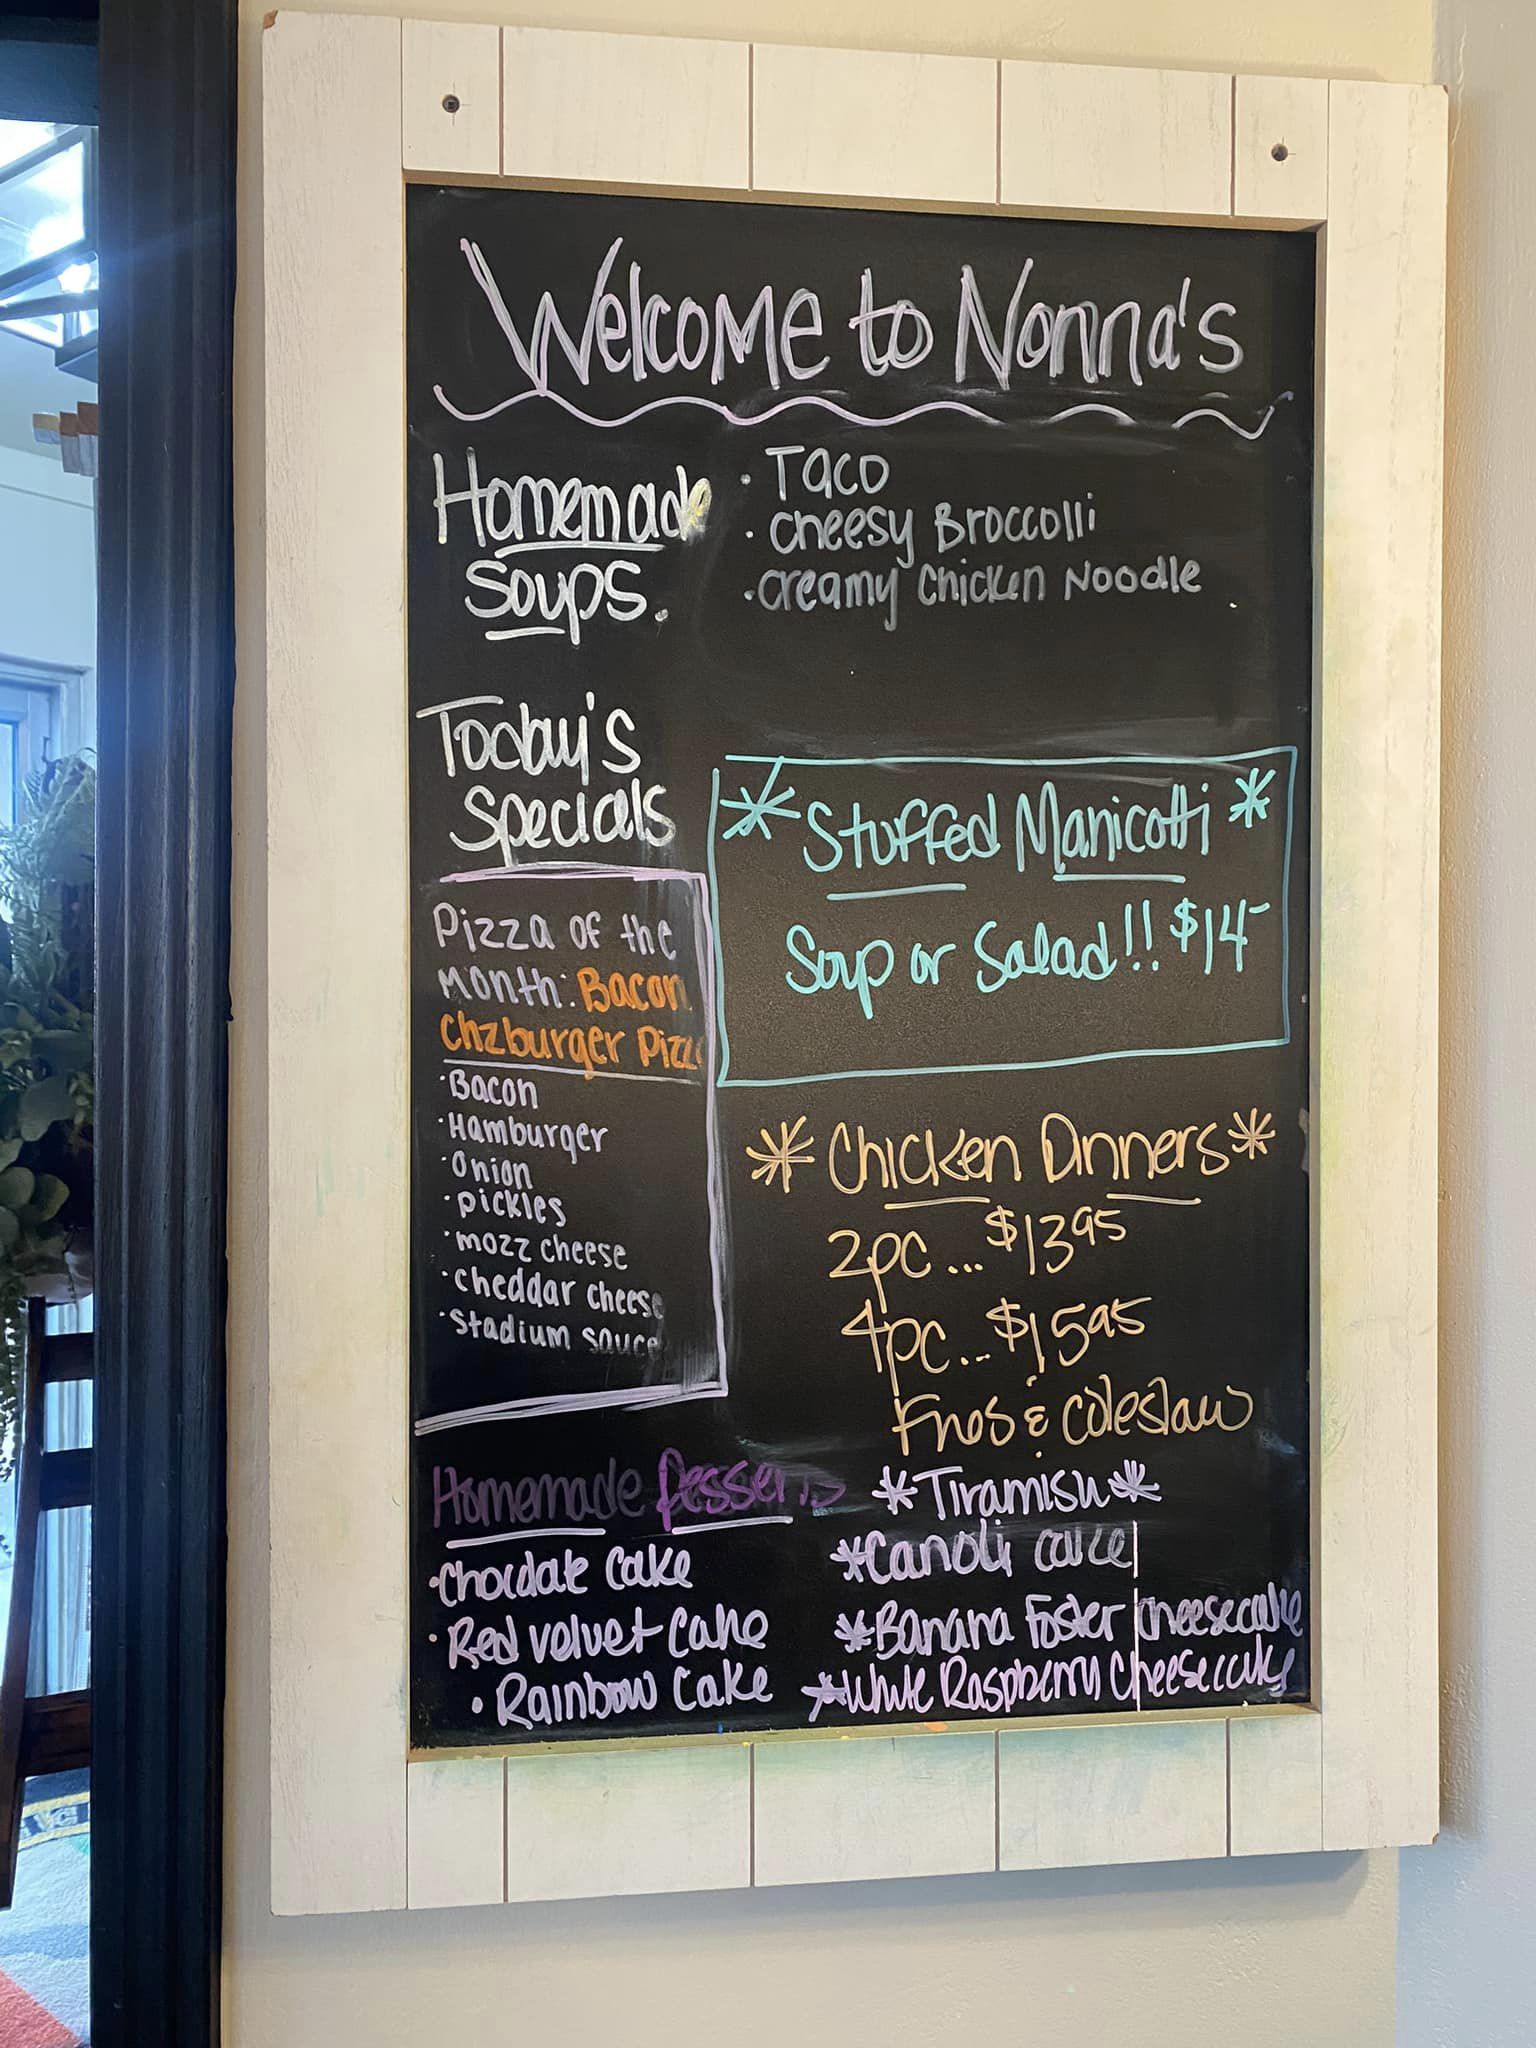 Welcome to Nonna's
Homemade
Soups.
· Taco
· Cheesy Broccolli
· Creamy Chicken Noodle
Today's
Specials
Pizza of the
Month: Bacon
Chzburger Pizza
· Bacon
· Hamburger
· Onion
· Pickles
· Mozz cheese
· Cheddar cheese
· Stadium sauce
* Stuffed Manicotti *
Soup or Salad!! $14-
* Chicken Dinners *
2pc... $13 95
4pc... $15 95
Fries & Coleslaw
Homemade Desserts
· Chocolate Cake
· Red Velvet Cake
· Rainbow Cake
* Tiramisu *
* Canoli cake
* Banana Foster Cheesecake
* White Raspberry Cheesecake